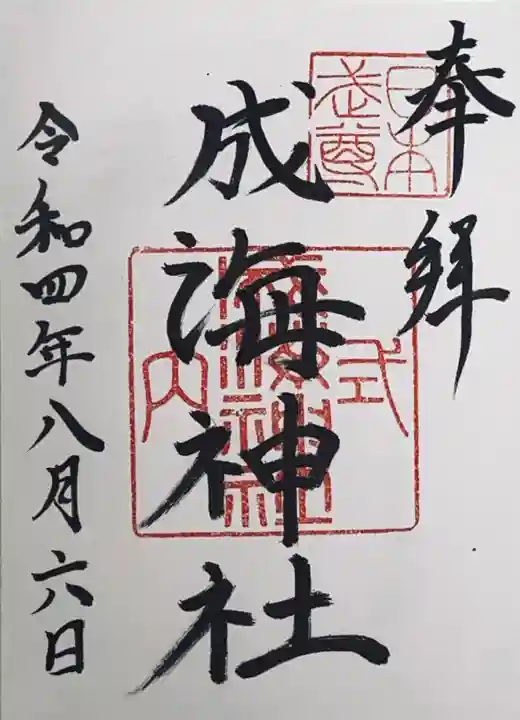 奉拝
日本武尊
成海神社
式内
令和四年八月六日